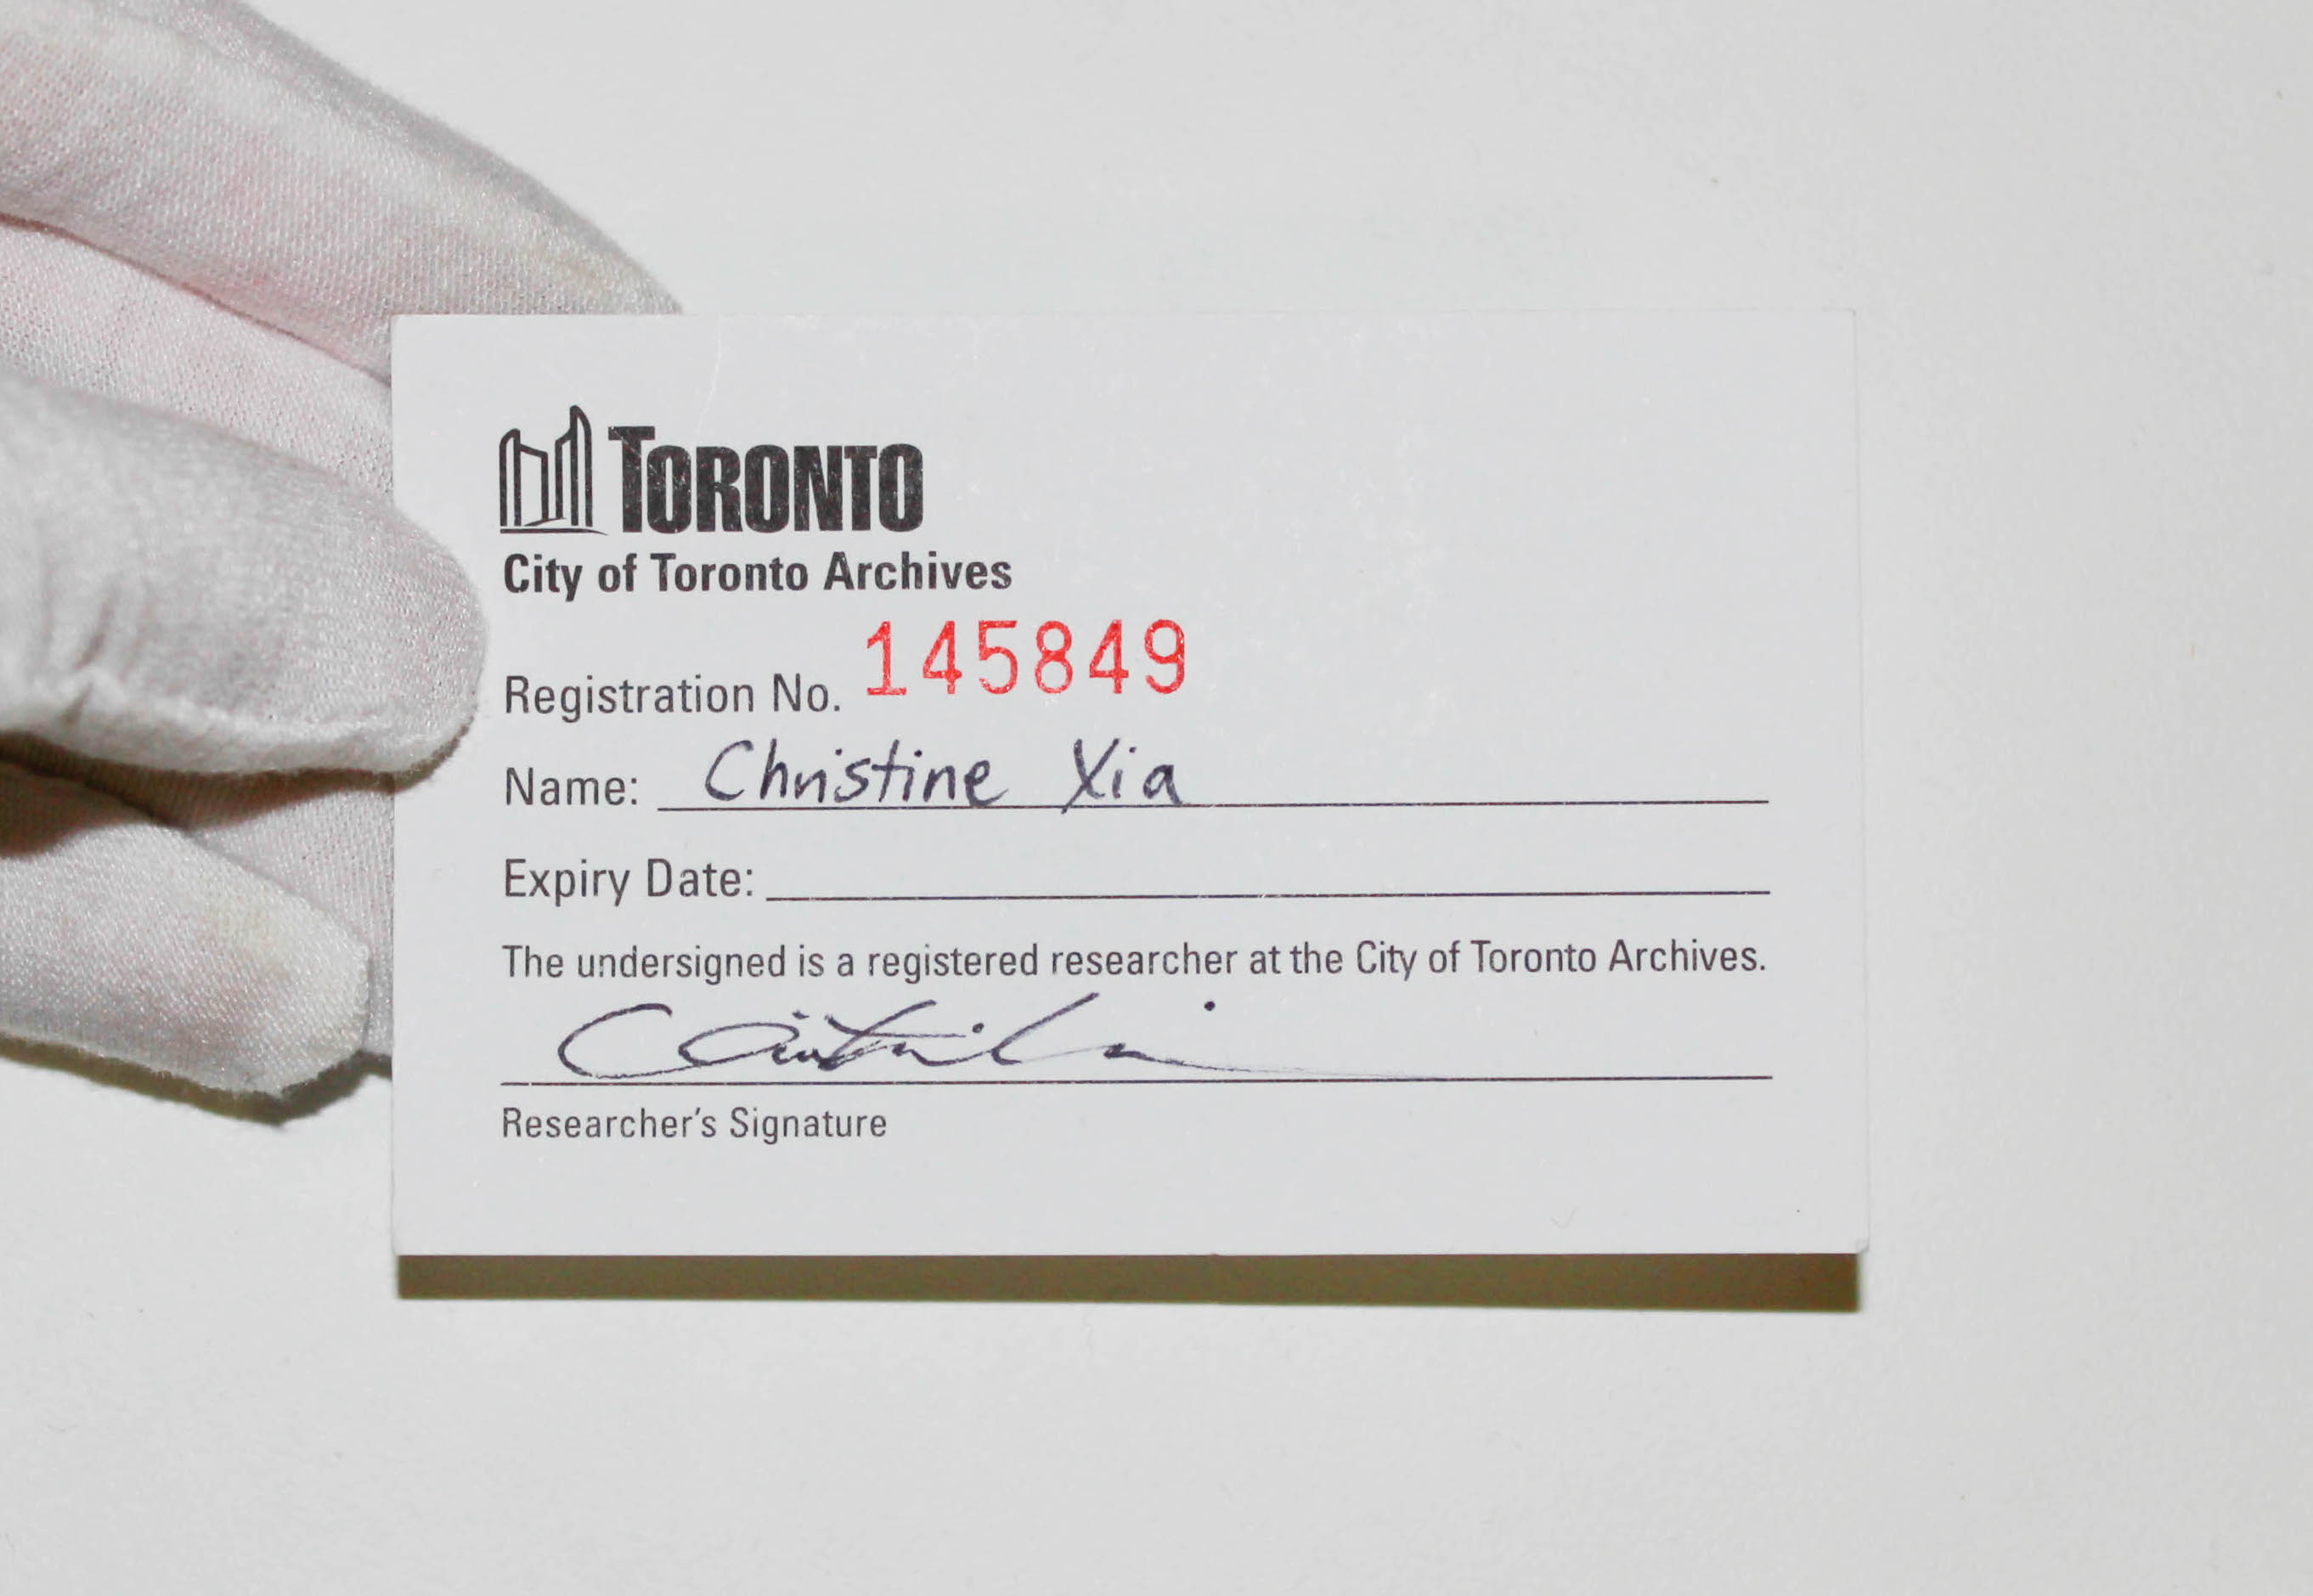 TORONTO
City of Toronto Archives
Registration No. 145849
Name: Christine Xia
Expiry Date:
The undersigned is a registered researcher at the City of Toronto Archives.
Researcher's Signature